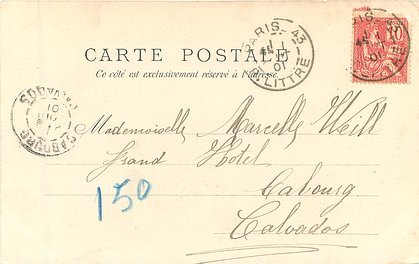 CARTE POSTALE
Ce côté est exclusivement réservé à l'adresse.
PARIS 43
01
R. LITTRÉ
10
Mademoiselle Marcelle Weill
Grand Hôtel
Cabourg
Calvados
150
CABOURG